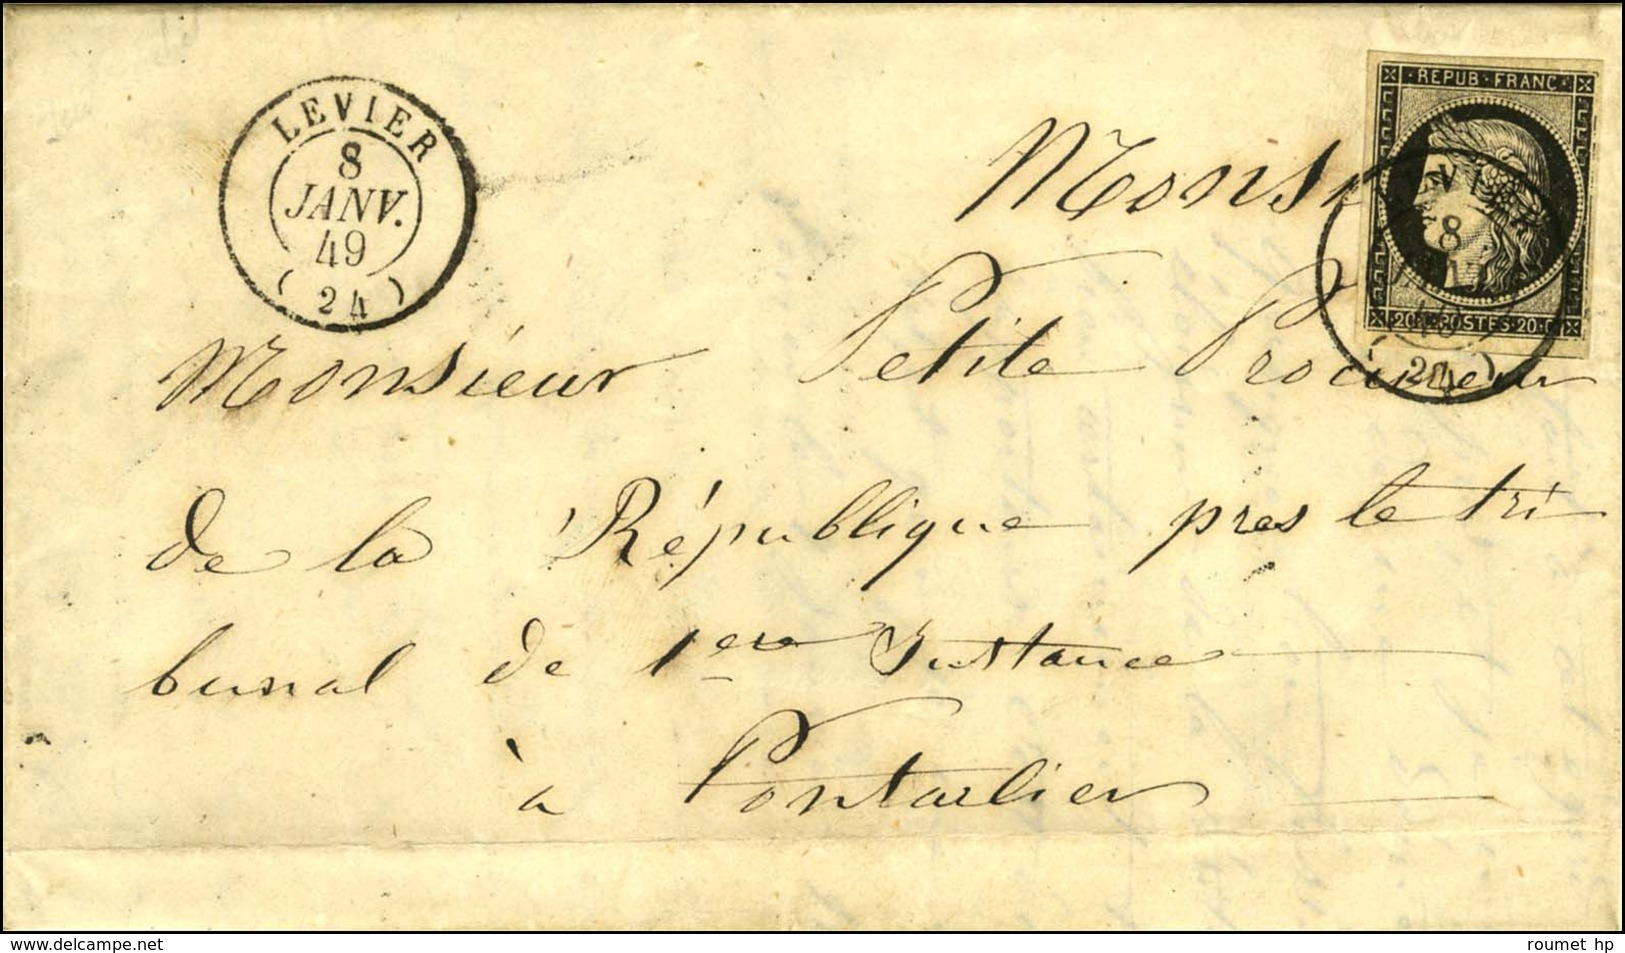 LEVIER
8
JANV.
49
(24)
REPUB·FRANC·
20·C·POSTES·20·C·
8
(24)
Monsr
Monsieur Petite Procureur
de la République pres le tri
bunal de 1ere Instance
à Pontarlier
www.delcampe.net
roumet hp